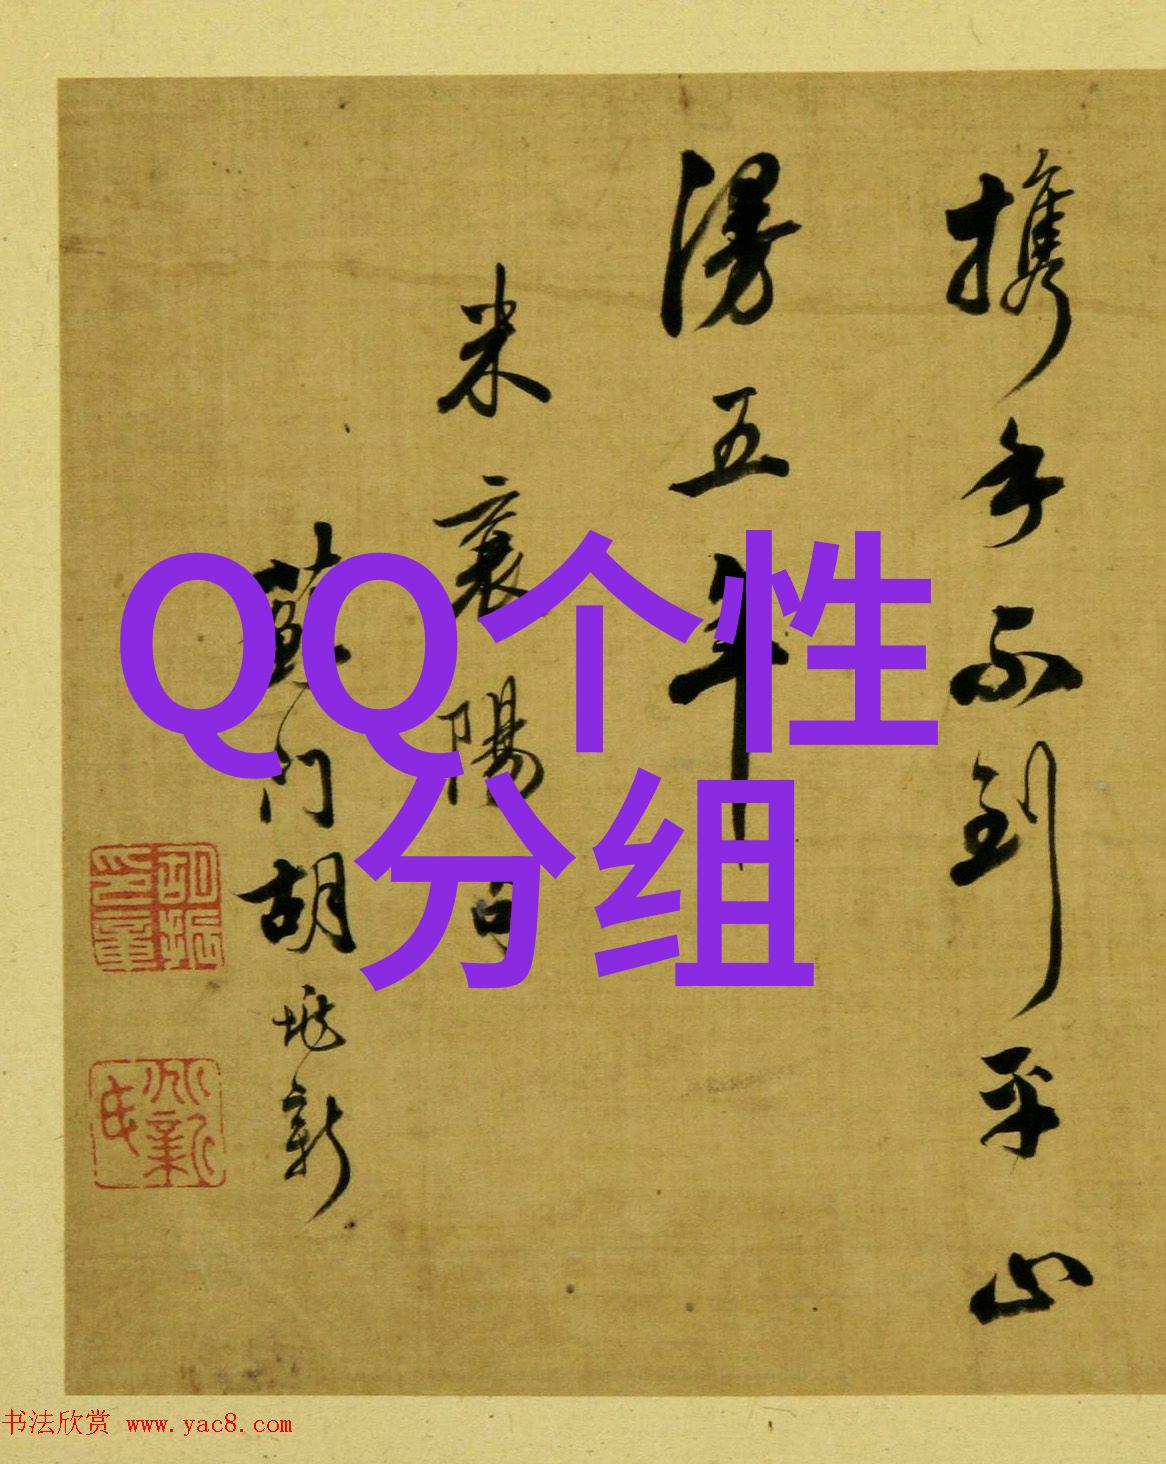 攜手不到平山
漫五年
米襄陽
蘇門胡兆新
QQ个性
分组
书法欣赏 www.yac8.com